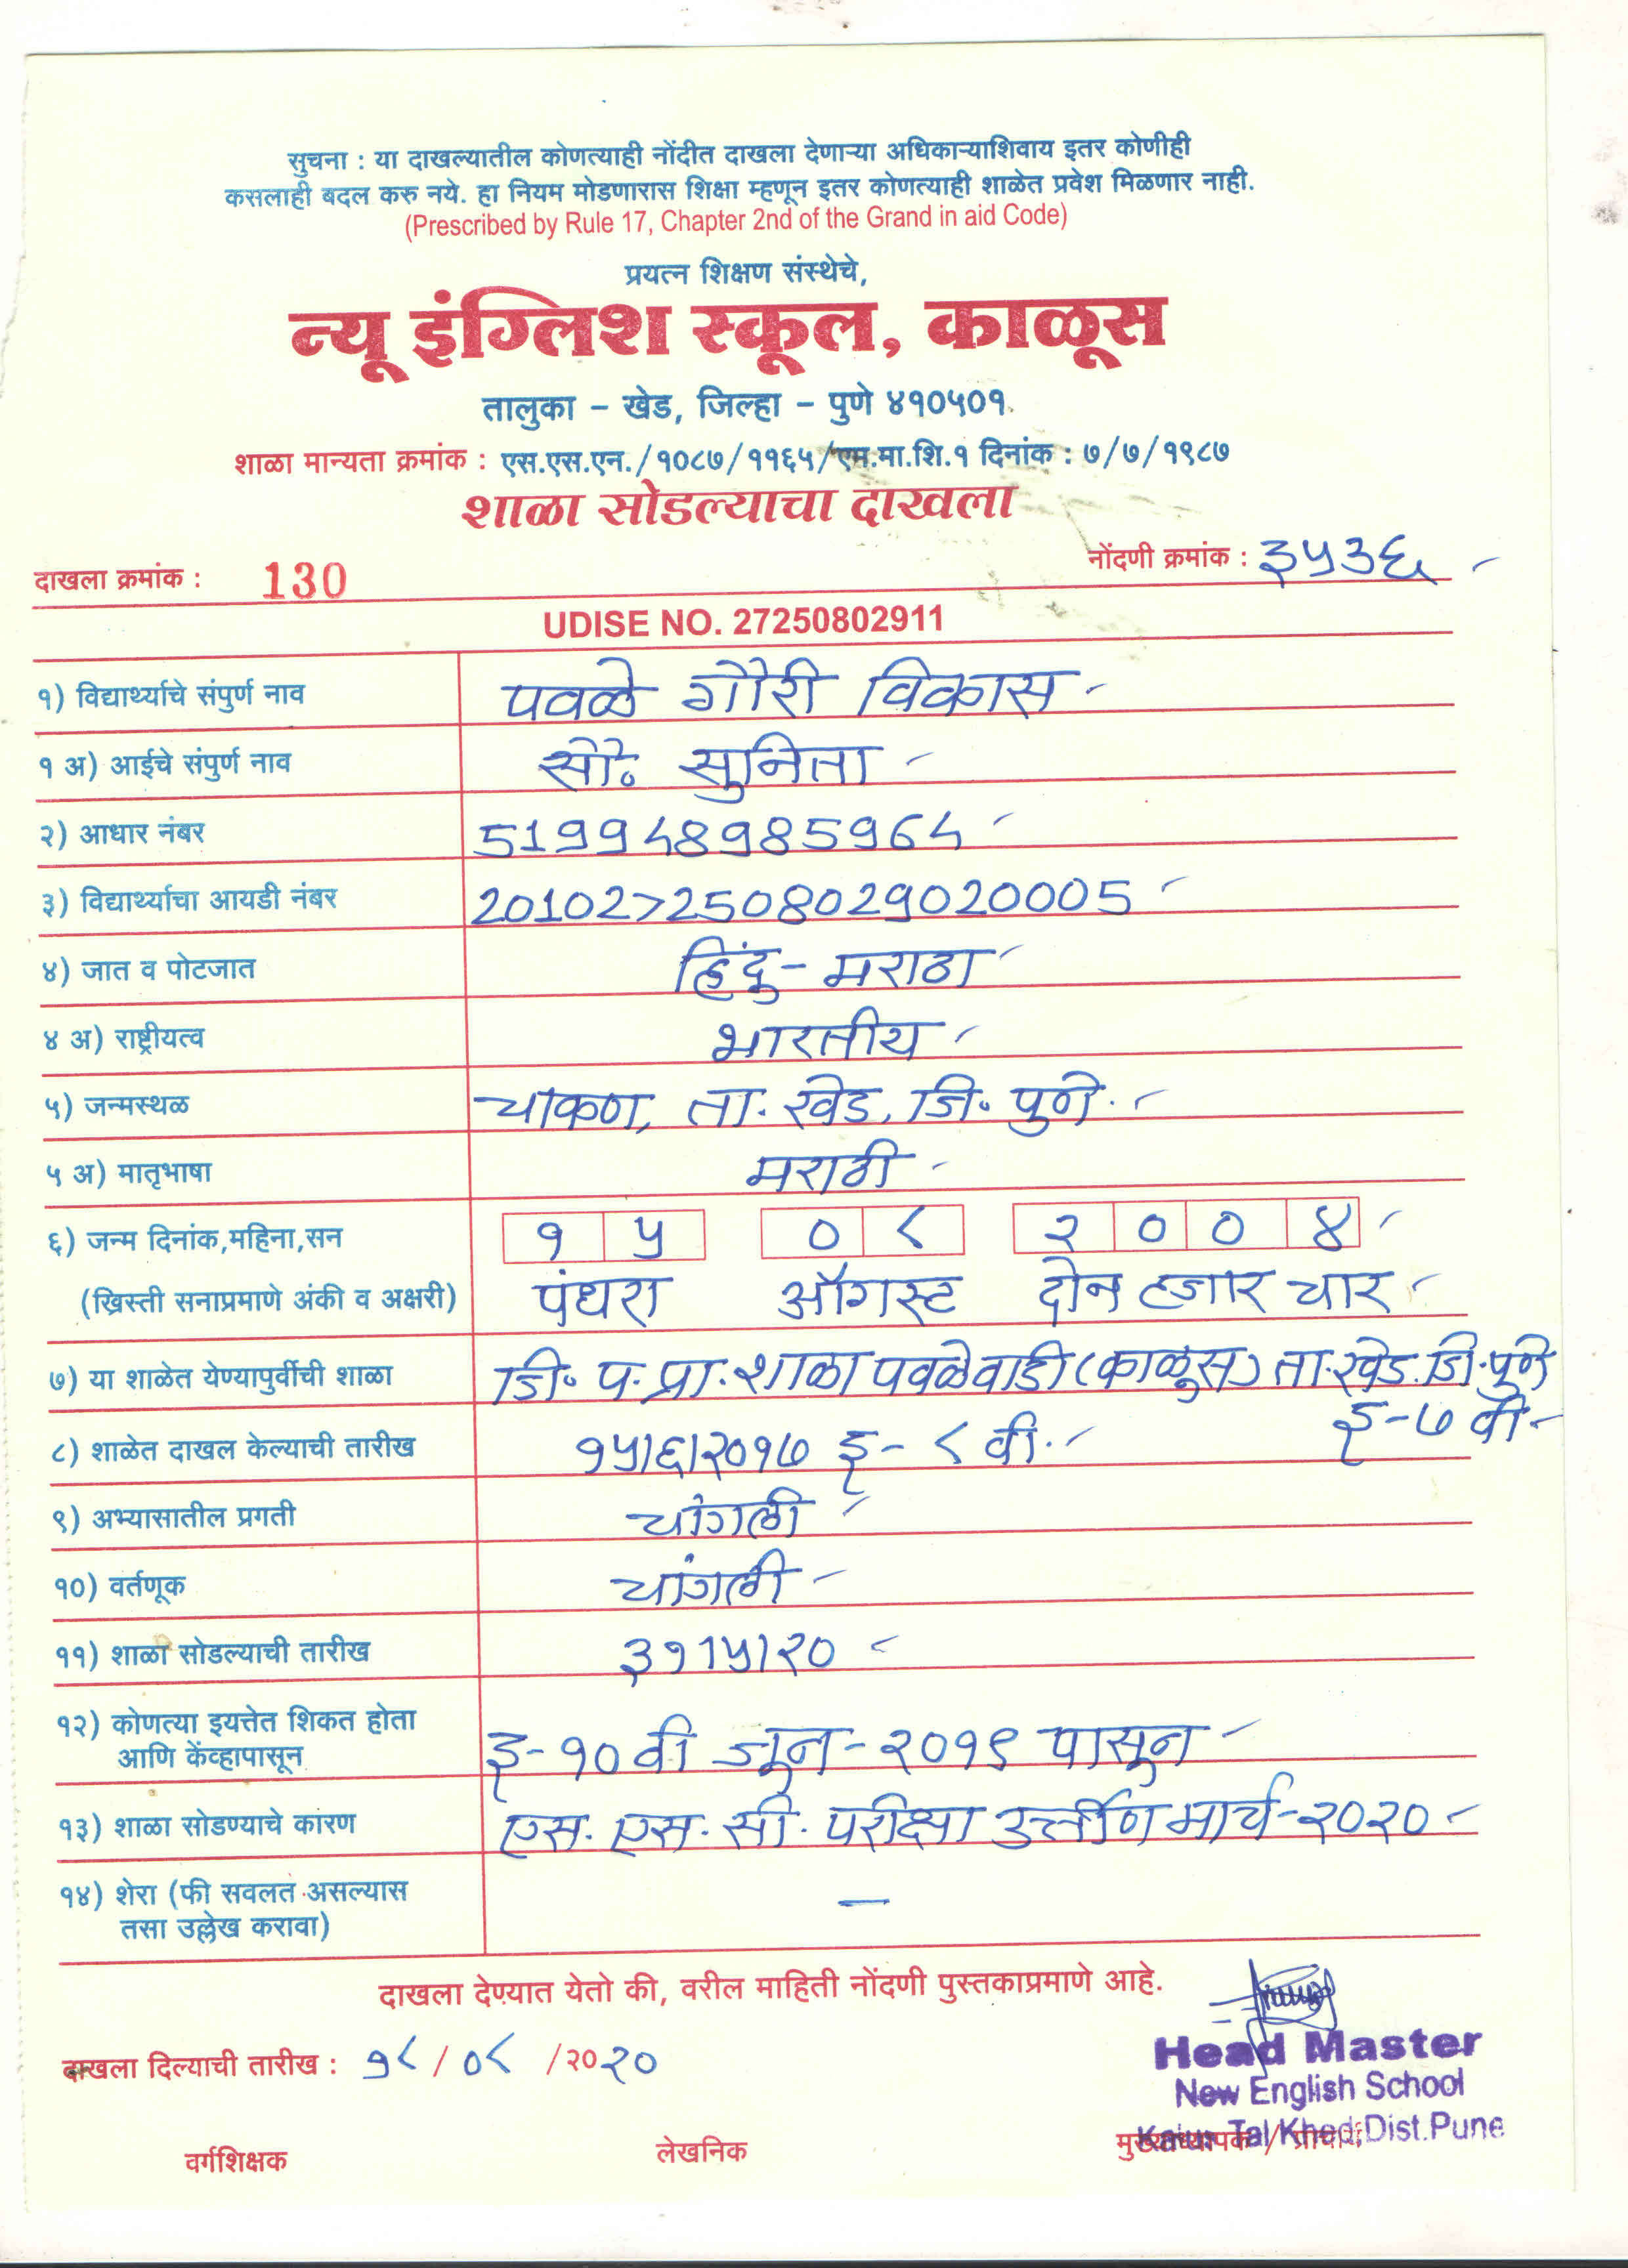 सुचना : या दाखल्यातील कोणत्याही नोंदीत दाखला देणाऱ्या अधिकाऱ्याशिवाय इतर कोणीही
कसलाही बदल करु नये. हा नियम मोडणारास शिक्षा म्हणून इतर कोणत्याही शाळेत प्रवेश मिळणार नाही.
(Prescribed by Rule 17, Chapter 2nd of the Grand in aid Code)
प्रयत्न शिक्षण संस्थेचे,
न्यू इंग्लिश स्कूल, काळूस
तालुका – खेड, जिल्हा – पुणे ४१०५०१.
शाळा मान्यता क्रमांक : एस.एस.एन./१०८७/११६५/एम.मा.शि.१ दिनांक : ७/७/१९८७
शाळा सोडल्याचा दाखला
दाखला क्रमांक : 130 नोंदणी क्रमांक : ३५३६
UDISE NO. 27250802911
१) विद्यार्थ्याचे संपुर्ण नाव पवळे गौरी विकास
१ अ) आईचे संपुर्ण नाव सौ. सुनिता
२) आधार नंबर 519948985964
३) विद्यार्थ्याचा आयडी नंबर 2010272508029020005
४) जात व पोटजात हिंदु - मराठा
४ अ) राष्ट्रीयत्व भारतीय
५) जन्मस्थळ चाकण, ता. खेड, जि. पुणे.
५ अ) मातृभाषा मराठी
६) जन्म दिनांक,महिना,सन १५ ०८ २००४
(ख्रिस्ती सनाप्रमाणे अंकी व अक्षरी) पंधरा ऑगस्ट दोन हजार चार
७) या शाळेत येण्यापुर्वीची शाळा जि. प. प्रा. शाळा पवळेवाडी (काळूस) ता. खेड. जि. पुणे
इ - ७ वी.
८) शाळेत दाखल केल्याची तारीख १५/६/२०१७ इ - ८ वी.
९) अभ्यासातील प्रगती चांगली
१०) वर्तणूक चांगली
११) शाळा सोडल्याची तारीख ३१/५/२०
१२) कोणत्या इयत्तेत शिकत होता
आणि केंव्हापासून इ - १० वी जून - २०१९ पासून
१३) शाळा सोडण्याचे कारण एस. एस. सी. परीक्षा उर्त्तीण मार्च - २०२०
१४) शेरा (फी सवलत असल्यास
तसा उल्लेख करावा) –
दाखला देण्यात येतो की, वरील माहिती नोंदणी पुस्तकाप्रमाणे आहे.
दाखला दिल्याची तारीख : १८ / ०८ / २०२०
Head Master
New English School
Tal Khed, Dist. Pune
वर्गशिक्षक लेखनिक